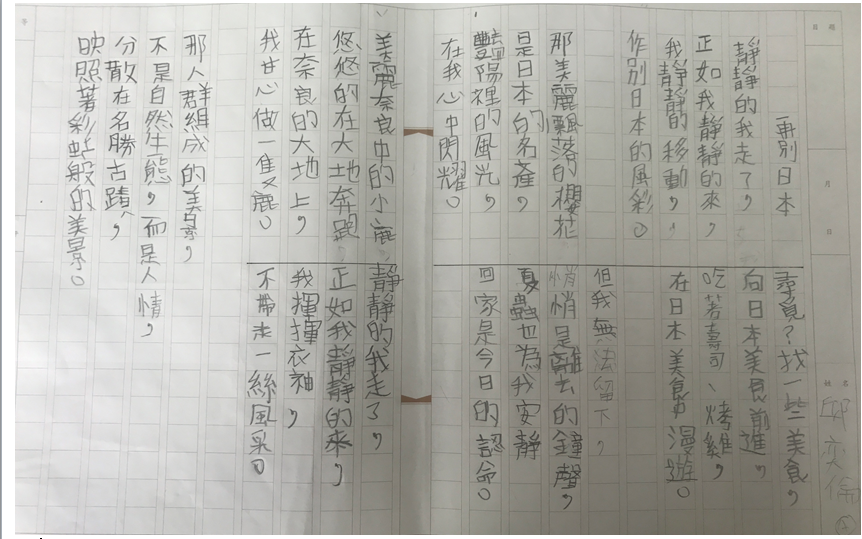 再別日本
靜靜的我走了，
正如我靜靜的來，
我靜靜的移動，
作別日本的風彩。
那美麗飄落的櫻花
是日本的名產，
豔陽裡的風光，
在我心中閃耀。
美麗奈良中的小鹿
悠悠的在大地奔跑
在奈良的大地上，
我甘心做一隻鹿。
那人群組成的美景，
不是自然生態，而是人情，
分散在名勝古蹟，
映照著彩虹般的美景。
尋覓？找一些美食，
向日本美食前進，
吃著壽司、烤雞，
在日本美食中漫遊。
但我無法留下，
悄悄是離去的鐘聲，
夏蟲也為我安靜
回家是今日的認命。
靜靜的我走了，
正如我靜靜的來，
我揮揮衣袖，
不帶走一絲風采。
月
日
姓名